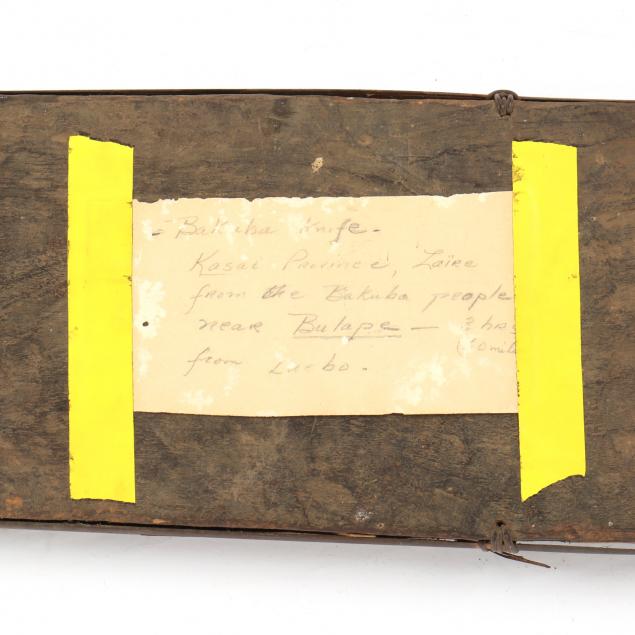 - Bakuba Knife -
Kasai Province, Zaire
from the Bakuba people
near Bulape - 2 hrs
miles
from Luebo.